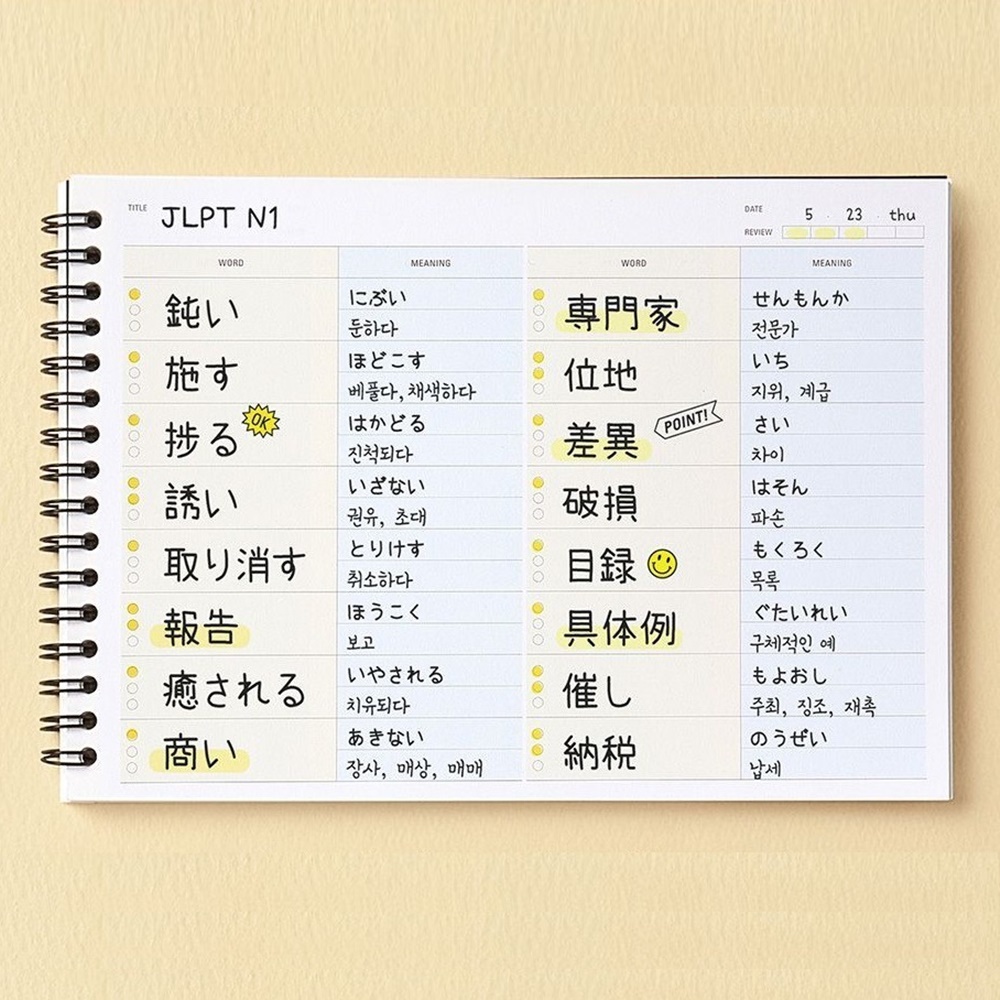 TITLE JLPT N1
DATE 5 . 23 . thu
REVIEW
WORD MEANING WORD MEANING
鈍い
にぶい
둔하다
施す
ほどこす
베풀다, 채색하다
捗る
OK
はかどる
진척되다
誘い
いざない
권유, 초대
取り消す
とりけす
취소하다
報告
ほうこく
보고
癒される
いやされる
치유되다
商い
あきない
장사, 매상, 매매
専門家
せんもんか
전문가
位地
いち
지위, 계급
差異
POINT!
さい
차이
破損
はそん
파손
目録
もくろく
목록
具体例
ぐたいれい
구체적인 예
催し
もよおし
주최, 징조, 재촉
納税
のうぜい
납세